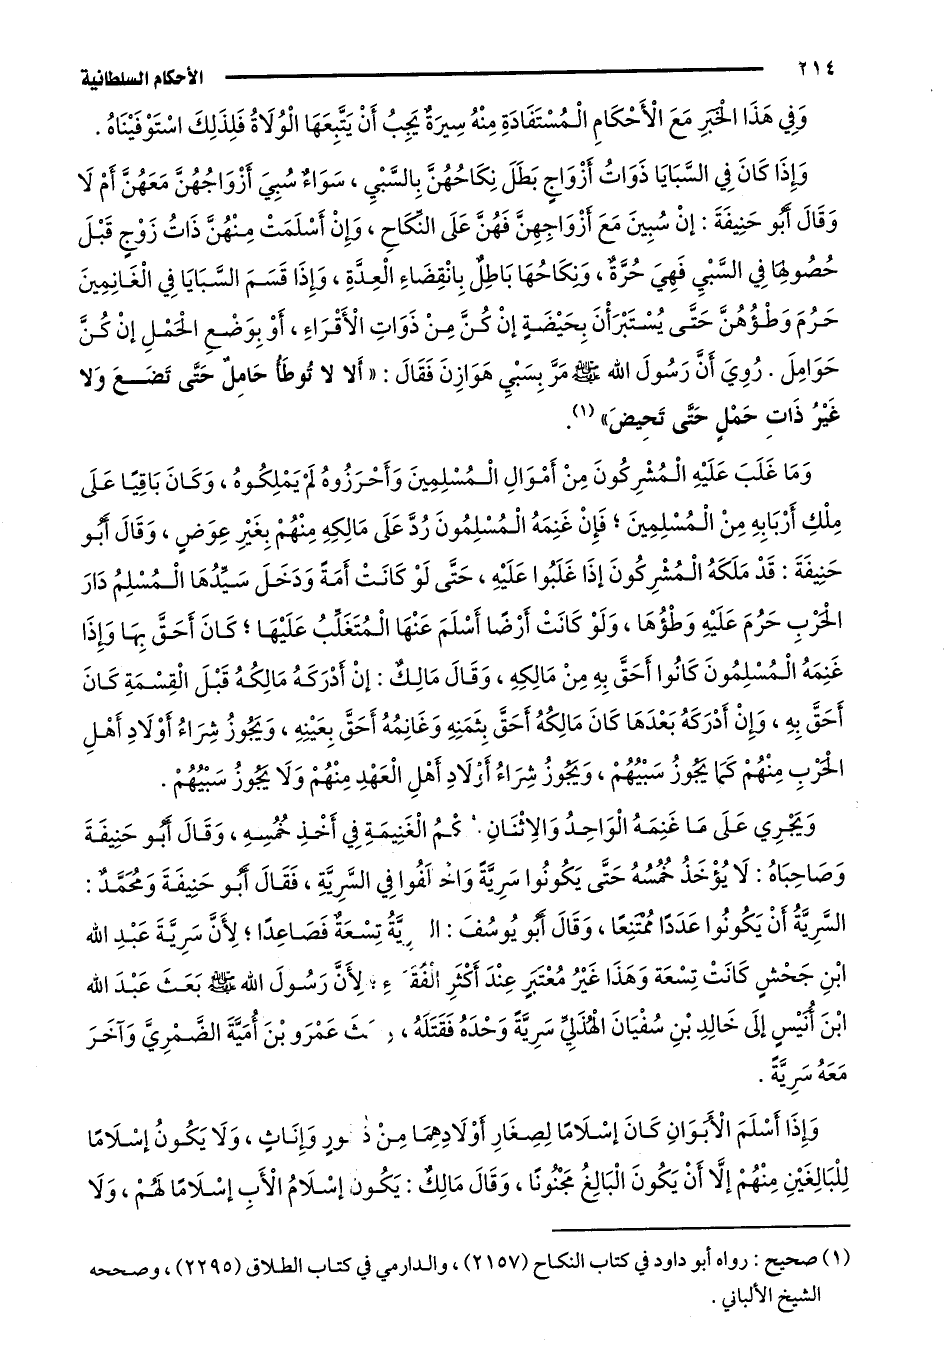 ٢١٤ الأحكام السلطانية
وَفِي هَذَا الْخَبَرِ مَعَ الْأَحْكَامِ الْمُسْتَفَادَةِ مِنْهُ سِيرَةٌ يَجِبُ أَنْ يَتَّبِعَهَا الْوُلَاةُ فَلِذَلِكَ اسْتَوْفَيْنَاهُ .
وَإِذَا كَانَ فِي السَّبَايَا ذَوَاتُ أَزْوَاجٍ بَطَلَ نِكَاحُهُنَّ بِالسَّبْيِ ، سَوَاءٌ سُبِيَ أَزْوَاجُهُنَّ مَعَهُنَّ أَمْ لَا
وَقَالَ أَبُو حَنِيفَةَ : إنْ سُبِينَ مَعَ أَزْوَاجِهِنَّ فَهُنَّ عَلَى النِّكَاحِ ، وَإِنْ أَسْلَمَتْ مِنْهُنَّ ذَاتُ زَوْجٍ قَبْلَ
حُصُولِهَا فِي السَّبْيِ فَهِيَ حُرَّةٌ ، وَنِكَاحُهَا بَاطِلٌ بِانْقِضَاءِ الْعِدَّةِ ، وَإِذَا قَسَمَ السَّبَايَا فِي الْغَانِمِينَ
حَرُمَ وَطْؤُهُنَّ حَتَّى يُسْتَبْرَأْنَ بِحَيْضَةٍ إنْ كُنَّ مِنْ ذَوَاتِ الْأَقْرَاءِ ، أَوْ بِوَضْعِ الْحَمْلِ إنْ كُنَّ
حَوَامِلَ . رُوِيَ أَنَّ رَسُولَ الله ﷺ مَرَّ بِسَبْيِ هَوَازِنَ فَقَالَ : « أَلا لا تُوطَأُ حَامِلٌ حَتَّى تَضَعَ وَلا
غَيْرُ ذَاتِ حَمْلٍ حَتَّى تَحِيضَ» (١).
وَمَا غَلَبَ عَلَيْهِ الْمُشْرِكُونَ مِنْ أَمْوَالِ الْمُسْلِمِينَ وَأَحْرَزُوهُ لَمْ يَمْلِكُوهُ ، وَكَانَ بَاقِيًا عَلَى
مِلْكِ أَرْبَابِهِ مِنَ الْمُسْلِمِينَ ؛ فَإِنْ غَنِمَهُ الْمُسْلِمُونَ رُدَّ عَلَى مَالِكِهِ مِنْهُمْ بِغَيْرِ عِوَضٍ ، وَقَالَ أَبُو
حَنِيفَةَ : قَدْ مَلَكَهُ الْمُشْرِكُونَ إذَا غَلَبُوا عَلَيْهِ ، حَتَّى لَوْ كَانَتْ أَمَةً وَدَخَلَ سَيِّدُهَا الْمُسْلِمُ دَارَ
الْحَرْبِ حَرُمَ عَلَيْهِ وَطْؤُهَا ، وَلَوْ كَانَتْ أَرْضًا أَسْلَمَ عَنْهَا الْمُتَغَلِّبُ عَلَيْهَا ؛ كَانَ أَحَقَّ بِهَا وَإِذَا
غَنِمَهُ الْمُسْلِمُونَ كَانُوا أَحَقَّ بِهِ مِنْ مَالِكِهِ ، وَقَالَ مَالِكٌ : إنْ أَدْرَكَهُ مَالِكُهُ قَبْلَ الْقِسْمَةِ كَانَ
أَحَقَّ بِهِ ، وَإِنْ أَدْرَكَهُ بَعْدَهَا كَانَ مَالِكُهُ أَحَقَّ بِثَمَنِهِ وَغَانِمُهُ أَحَقَّ بِعَيْنِهِ ، وَيَجُوزُ شِرَاءُ أَوْلَادِ أَهْلِ
الْحَرْبِ مِنْهُمْ كَمَا يَجُوزُ سَبْيُهُمْ ، وَيَجُوزُ شِرَاءُ أَوْلَادِ أَهْلِ الْعَهْدِ مِنْهُمْ وَلَا يَجُوزُ سَبْيُهُمْ .
وَيَجْرِي عَلَى مَا غَنِمَهُ الْوَاحِدُ وَالِاثْنَانِ الْغَنِيمَةِ فِي أَخْذِ خُمُسِهِ ، وَقَالَ أَبُو حَنِيفَةَ
وَصَاحِبَاهُ : لَا يُؤْخَذُ خُمُسُهُ حَتَّى يَكُونُوا سَرِيَّةً فِي السَّرِيَّةِ ، فَقَالَ أَبُو حَنِيفَةَ وَمُحَمَّدٌ :
السَّرِيَّةُ أَنْ يَكُونُوا عَدَدًا مُمْتَنِعًا ، وَقَالَ أَبُو يُوسُفَ : تِسْعَةٌ فَصَاعِدًا ؛ لِأَنَّ سَرِيَّةَ عَبْدِ الله
ابْنِ جَحْشٍ كَانَتْ تِسْعَة وَهَذَا غَيْرُ مُعْتَبَرٍ عِنْدَ أَكْثَرِ ؛ لِأَنَّ رَسُولَ الله ﷺ بَعَثَ عَبْدَ الله
ابْنَ أُنَيْسٍ إلَى خَالِدِ بْنِ سُفْيَانَ الْهُذَلِيِّ سَرِيَّةً وَحْدَهُ فَقَتَلَهُ ، عَمْرَو بْنَ أُمَيَّةَ الضَّمْرِيَّ وَآخَرَ
مَعَهُ سَرِيَّةً .
وَإِذَا أَسْلَمَ الْأَبَوَانِ كَانَ إسْلَامًا لِصِغَارِ أَوْلَادِهِمَا مِنْ وَإِنَاثٍ ، وَلَا يَكُونُ إسْلَامًا
لِلْبَالِغَيْنِ مِنْهُمْ إلَّا أَنْ يَكُونَ الْبَالِغُ مَجْنُونًا ، وَقَالَ مَالِكٌ : يَكُون إسْلَامُ الْأَبِ إسْلَامًا لَهُمْ ، وَلَا
(١) صحيح : رواه أبو داود في كتاب النكاح (٢١٥٧) ، والدارمي في كتاب الطلاق (٢٢٩٥) ، وصححه
الشيخ الألباني .